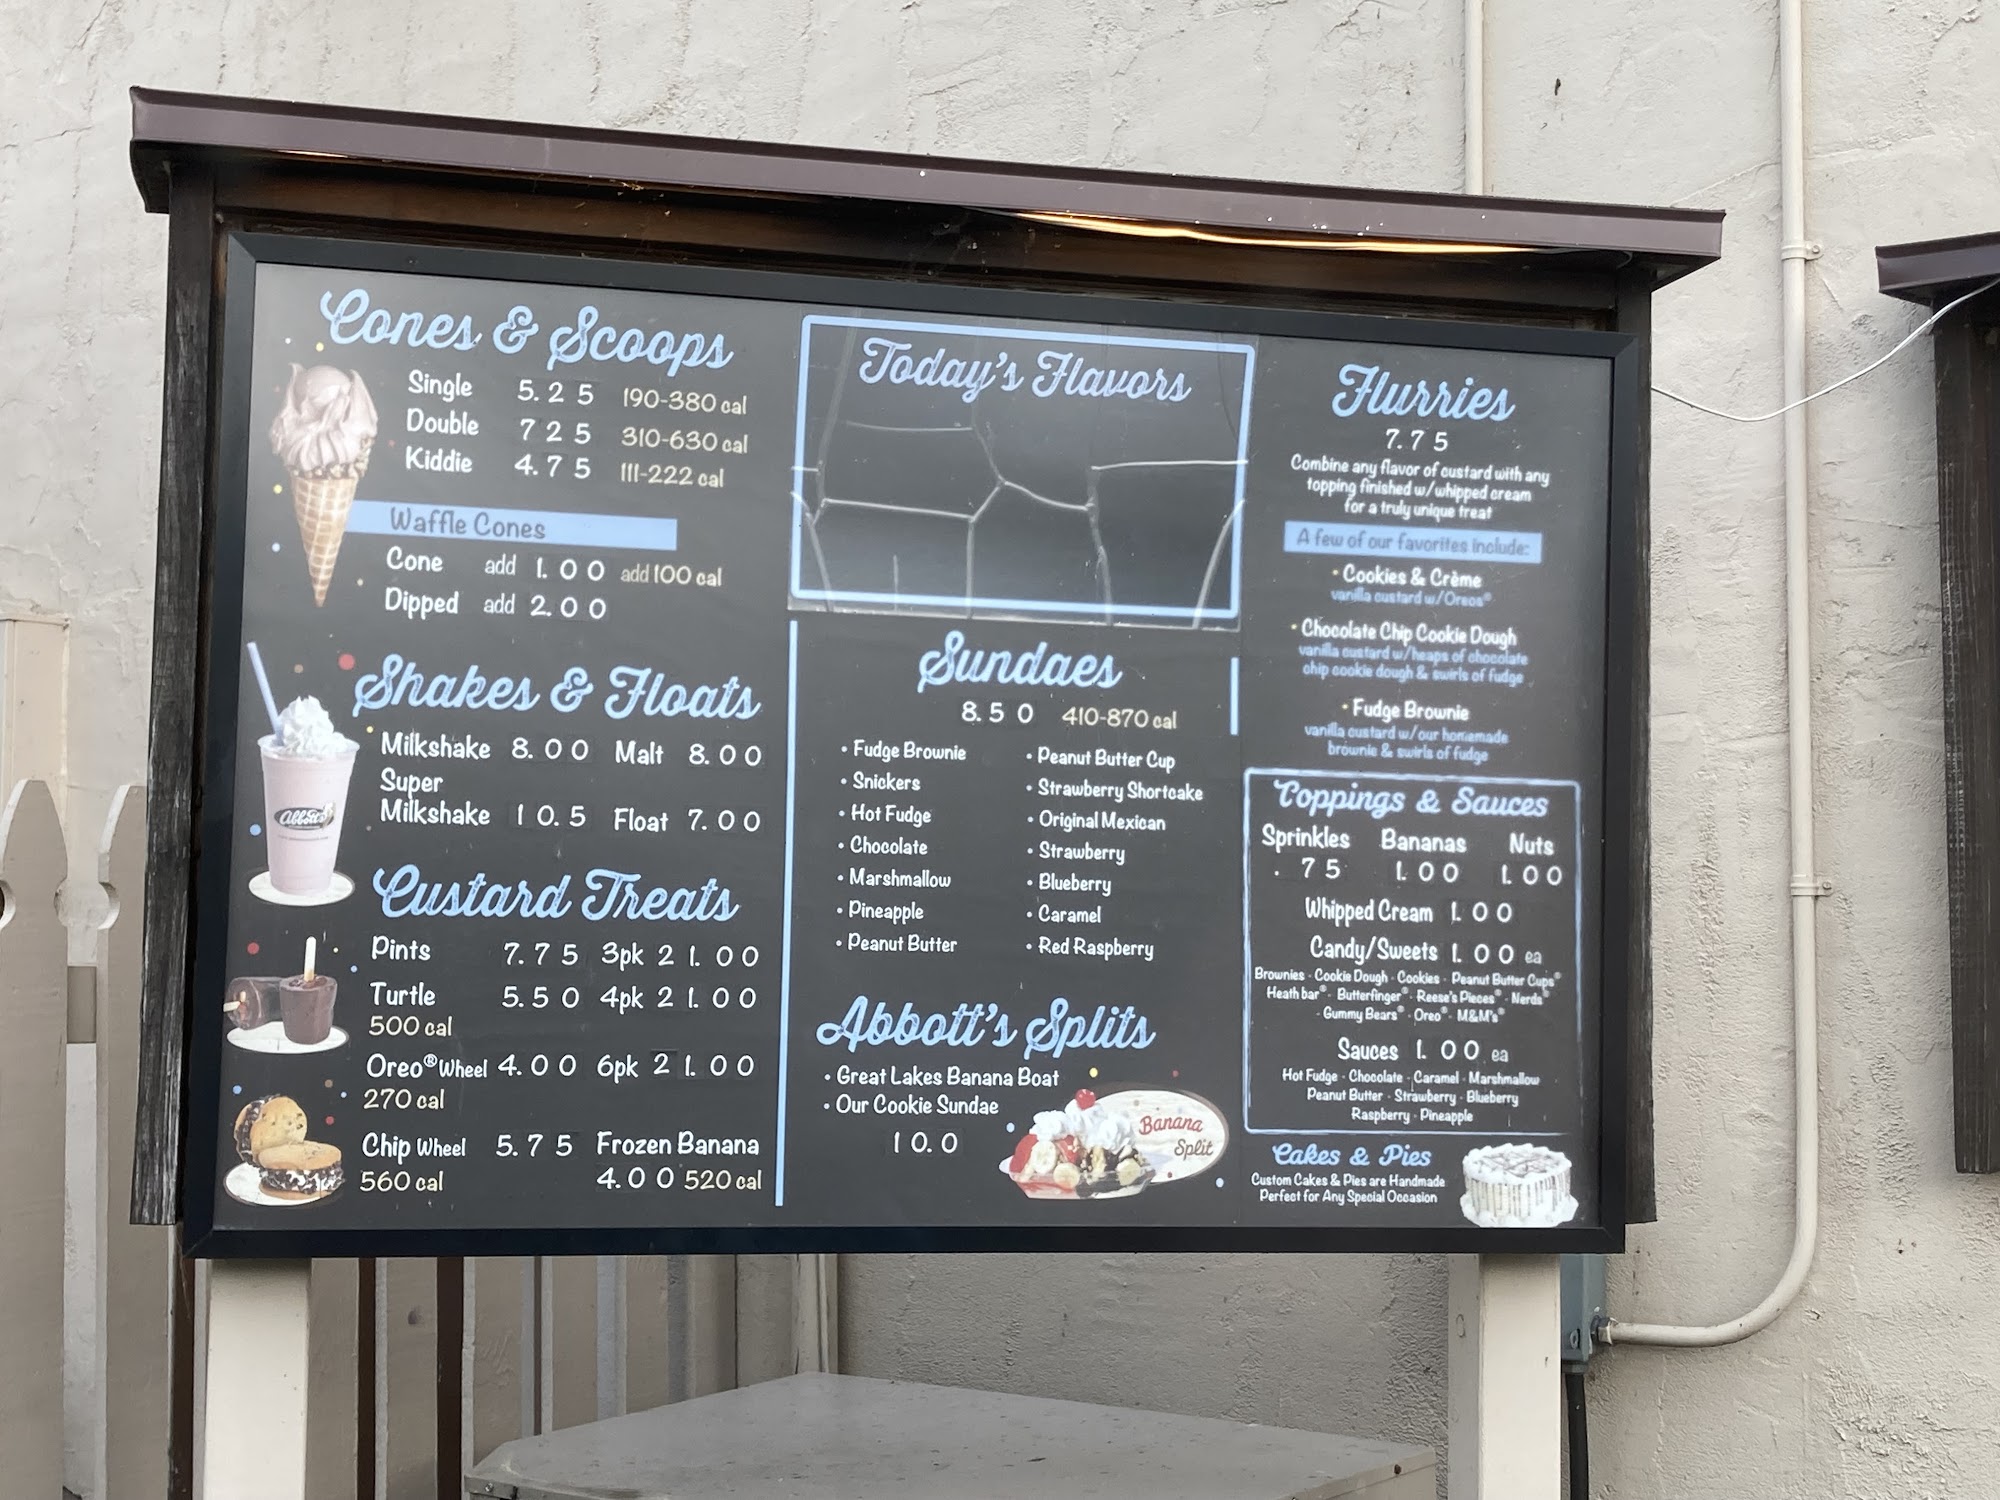 Cones & Scoops
Single 5.25 190-380 cal
Double 725 310-630 cal
Kiddie 4.75 111-222 cal
Waffle Cones
Cone add 1.00 add 100 cal
Dipped add 2.00
Shakes & Floats
Milkshake 8.00 Malt 8.00
Super
Milkshake 10.5 Float 7.00
Abbott's
Custard Treats
Pints 7.75 3pk 21.00
Turtle 5.50 4pk 21.00
500 cal
Oreo® Wheel 4.00 6pk 21.00
270 cal
Chip Wheel 5.75 Frozen Banana
560 cal 4.00 520 cal
Today's Flavors
Sundaes
8.50 410-870 cal
• Fudge Brownie
• Snickers
• Hot Fudge
• Chocolate
• Marshmallow
• Pineapple
• Peanut Butter
• Peanut Butter Cup
• Strawberry Shortcake
• Original Mexican
• Strawberry
• Blueberry
• Caramel
• Red Raspberry
Abbott's Splits
• Great Lakes Banana Boat
• Our Cookie Sundae
10.0
Banana
Split
Flurries
7.75
Combine any flavor of custard with any
topping finished w/whipped cream
for a truly unique treat
A few of our favorites include:
• Cookies & Crème
vanilla custard w/Oreos®
• Chocolate Chip Cookie Dough
vanilla custard w/heaps of chocolate
chip cookie dough & swirls of fudge
• Fudge Brownie
vanilla custard w/our homemade
brownie & swirls of fudge
Toppings & Sauces
Sprinkles Bananas Nuts
.75 1.00 1.00
Whipped Cream 1.00
Candy/Sweets 1.00 ea
Brownies · Cookie Dough · Cookies · Peanut Butter Cups®
Heath bar® · Butterfinger® · Reese's Pieces® · Nerds®
· Gummy Bears® · Oreo® · M&M's®
Sauces 1.00 ea
Hot Fudge · Chocolate · Caramel · Marshmallow
Peanut Butter · Strawberry · Blueberry
Raspberry · Pineapple
Cakes & Pies
Custom Cakes & Pies are Handmade
Perfect for Any Special Occasion